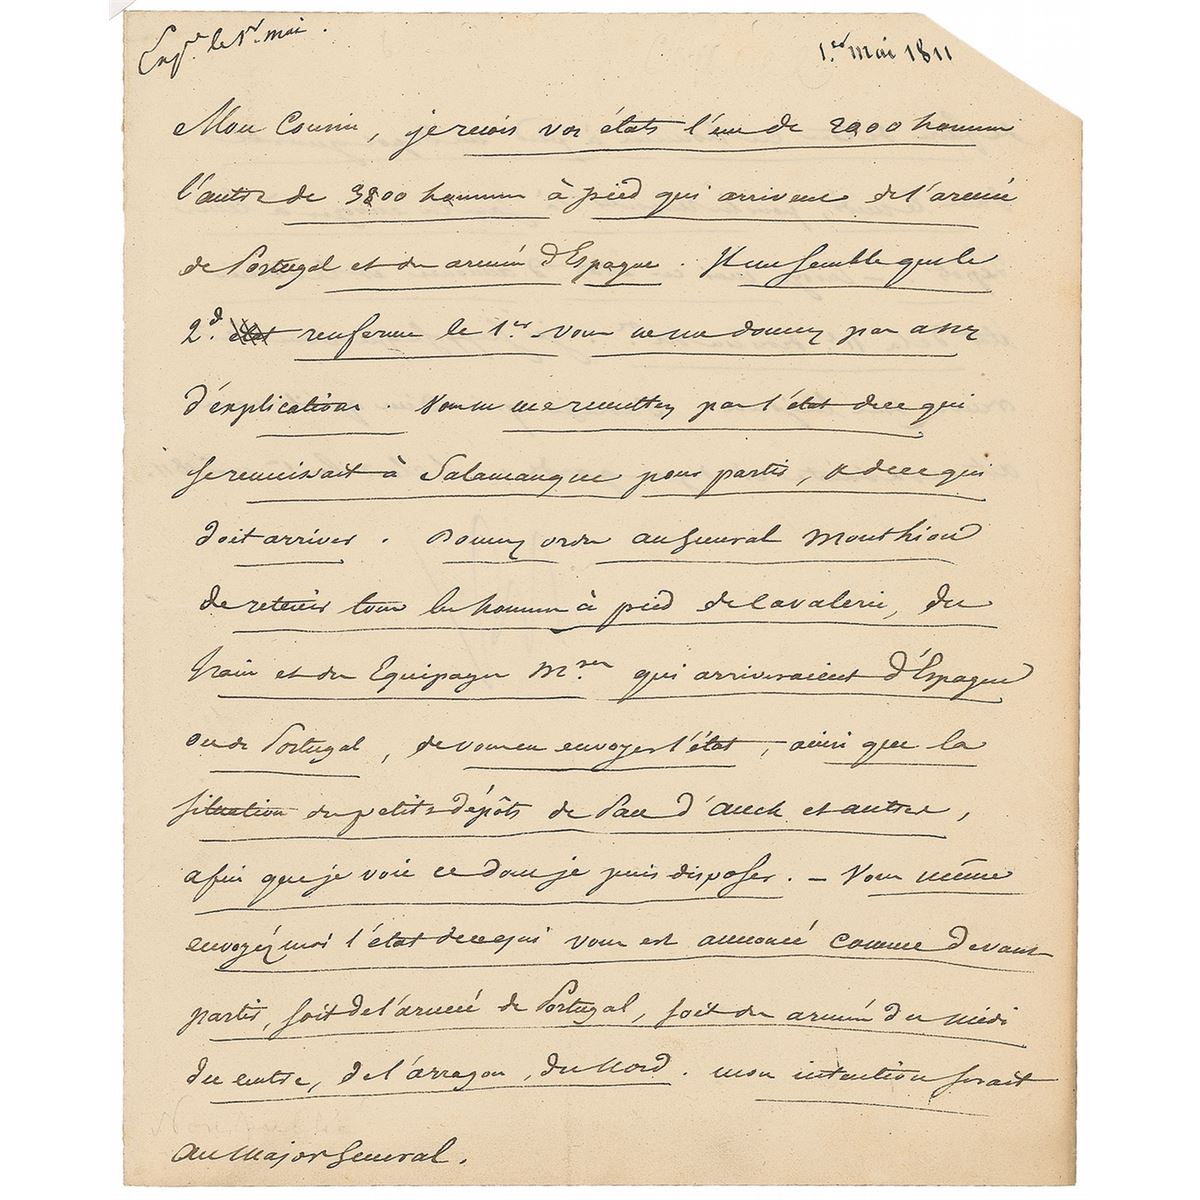 Exp.ée le 1er mai.
1.er mai 1811
Mon Cousin, je reçois vos états l'un de 2900 hommes
l'autre de 3800 hommes à pied qui arrivent de l'armée
de Portugal et des armées d'Espagne. Il me semble que le
2.d état renferme le 1.er vous ne me donnez pas assez
d'explications. Vous ne me remettez pas l'état de ce qui
se reunissait à Salamanque pour partir, & de ce qui
doit arriver. Donnez ordre au General Monthion
de retenir tous les hommes à pied de Cavalerie, du
train et des Equipages M.res qui arriveraient d'Espagne
ou de Portugal, de vous en envoyer l'état, ainsi que la
situation des petits dépôts de Pau d'Auch et autres,
afin que je voie ce dont je puis disposer. — Vous même
envoyéz moi l'état de ce qui vous est annoncé comme devant
partir, soit de l'armée de Portugal, soit des armées du midi
du centre, de l'arragon, du Nord. mon intention serait
Au Major General.